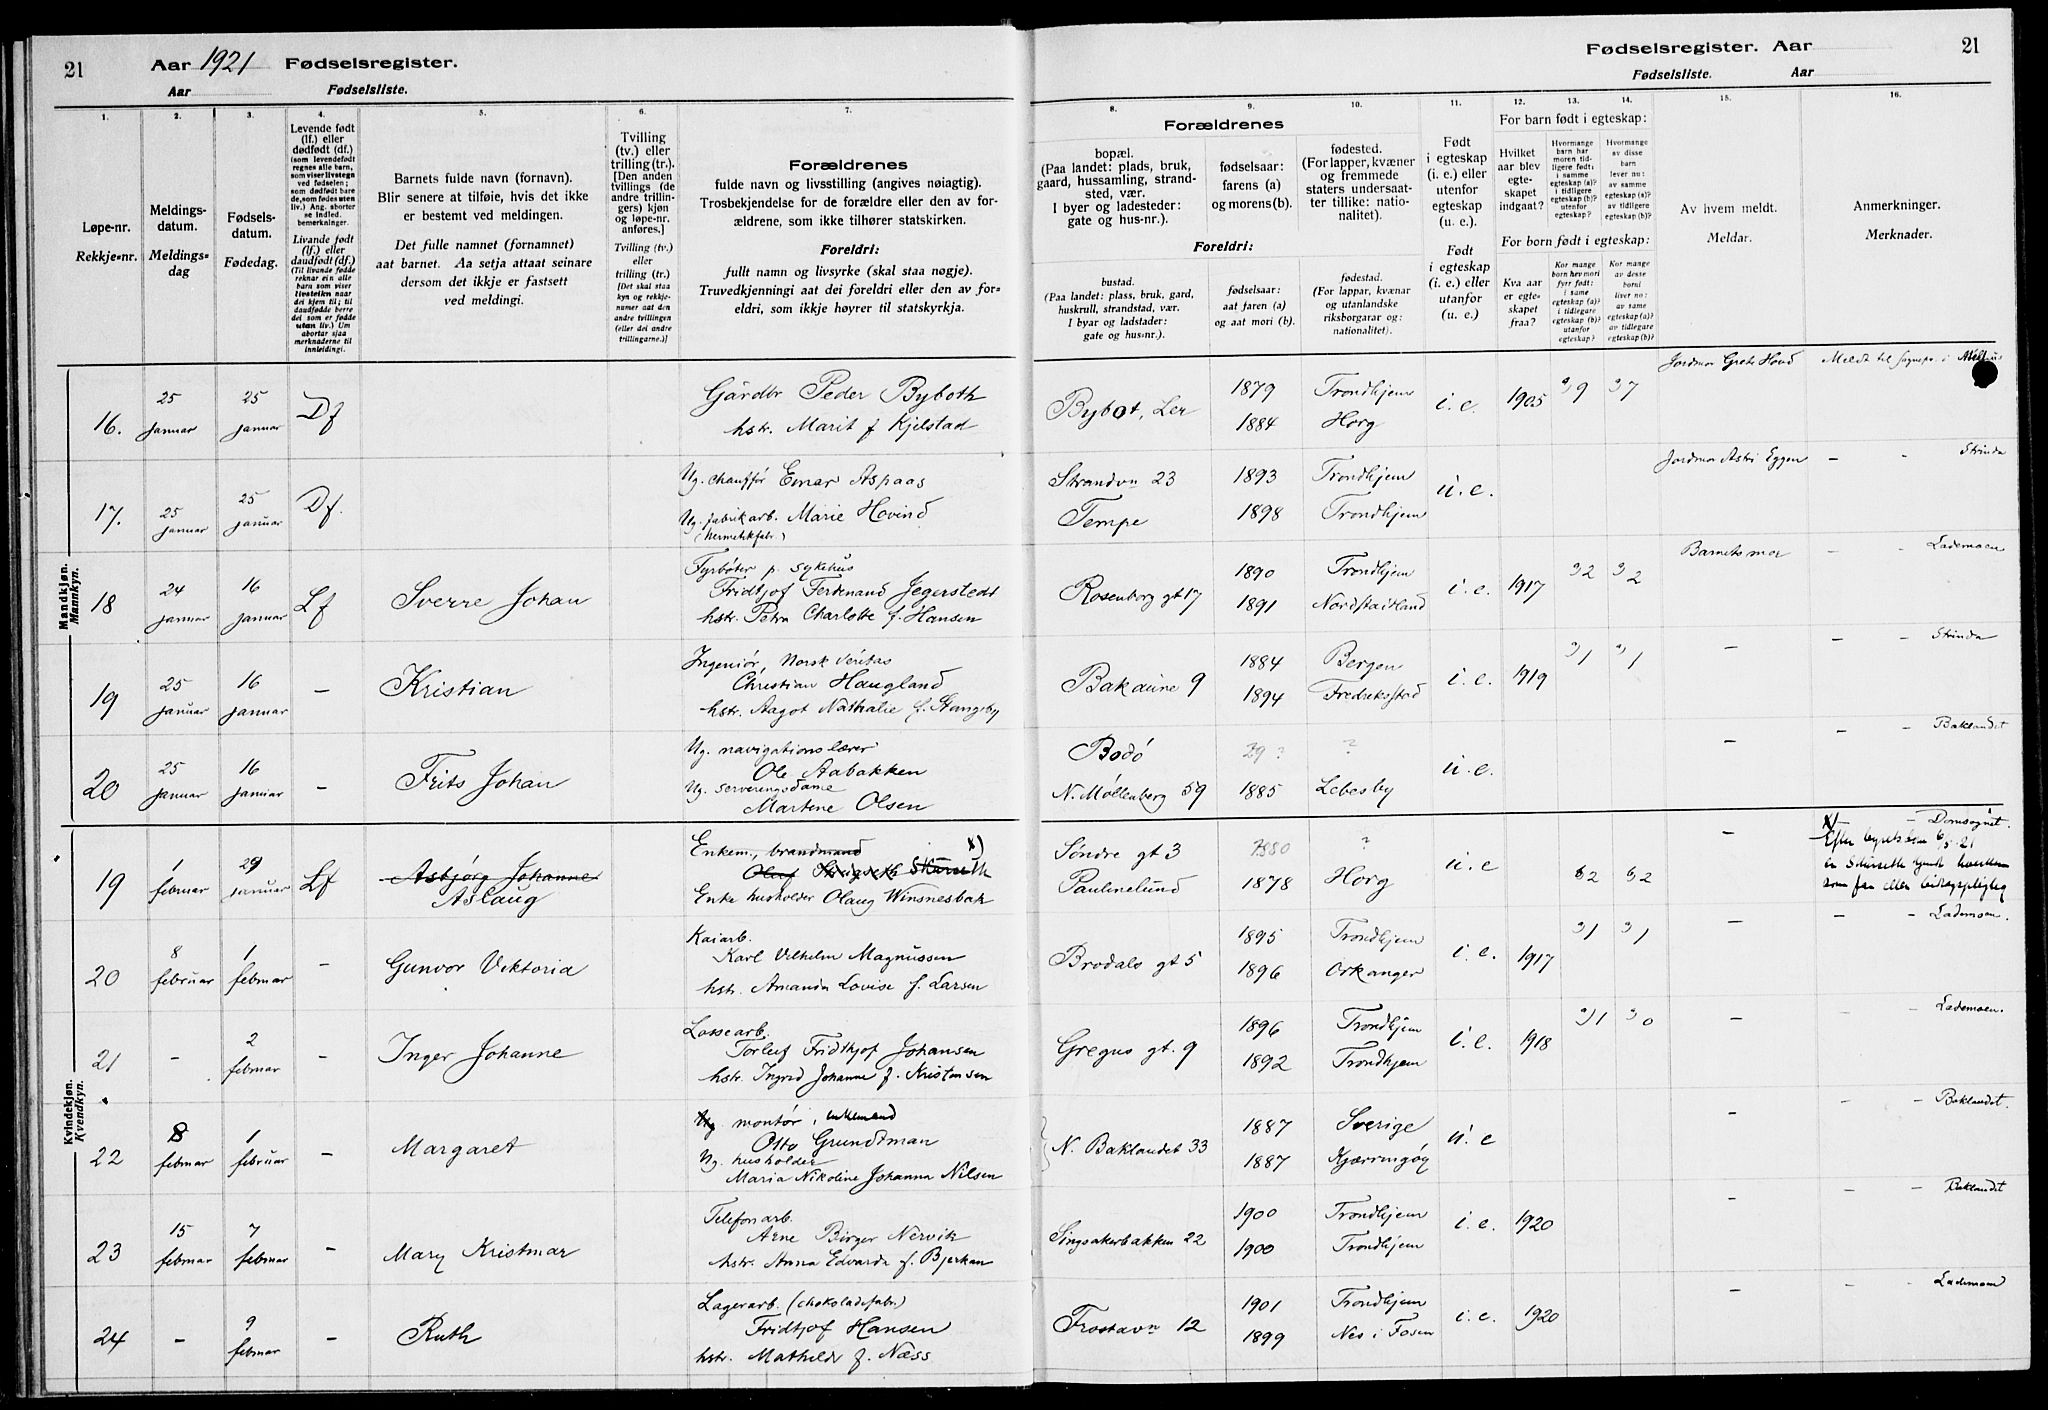 21 Aar 1921 Fødselsregister.
Aar Fødselsliste.
Fødselsregister. Aar 21
Fødselsliste. Aar
1. 2. 3. 4. 5. 6. 7. 8. 9. 10. 11. 12. 13. 14. 15. 16.
Løpe-nr.
Rekkje-nr.
Meldings-
datum.
Meldings-
dag
Fødsels-
datum.
Fødedag.
Levende født
(lf.) eller
dødfødt (df.)
(som levendefødt
regnes alle barn,
som viser livstegn
ved fødselen;
som dødfødt bare
de, som fødes uten
liv.) Ang. aborter
se indled.
bemerkninger.
Livande født
(lf.) eller
daudfødt (df.)
(Til livande fødde
reknar ein alle
barn som viser
livsteikn naar
dei kjem til; til
daudfødde berre
dei som er fødde
utan liv.) Um
abortar sjaa
merknaderne til
innleidingi.
Barnets fulde navn (fornavn).
Blir senere at tilføie, hvis det ikke
er bestemt ved meldingen.
Det fulle namnet (fornamnet)
aat barnet. Aa setja attaat seinare
dersom det ikkje er fastsett
ved meldingi.
Tvilling
(tv.) eller
trilling (tr.).
[Den anden
tvillings (de
andre trillin-
gers) kjøn
og løpe-nr.
anføres.]
Tvilling (tv.)
eller
trilling (tr.)
[Det skal staa
kyn og rekkje-
numer aat den
andre tvillingen
(eller dei andre
trillingarne.)]
Forældrenes
fulde navn og livsstilling (angives nøiagtig).
Trosbekjendelse for de forældre eller den av for-
ældrene, som ikke tilhører statskirken.
Foreldri:
fullt namn og livsyrke (skal staa nøgje).
Truvedkjenningi aat dei foreldri eller den av for-
eldri, som ikkje høyrer til statskyrkja.
Forældrenes
bopæl.
(Paa landet: plads, bruk,
gaard, hussamling, strand-
sted, vær.
I byer og ladesteder:
gate og hus-nr.).
fødselsaar:
farens (a)
og morens (b).
fødested.
(For lapper, kvæner
og fremmede
staters undersaat-
ter tillike: natio-
nalitet).
Foreldri:
bustad.
(Paa landet: plass, bruk, gard,
huskrull, strandstad, vær.
I byar og ladstader:
gate og hus-nr.).
fødselsaar:
aat faren (a)
og aat mori (b).
fødestad.
(For lappar, kvænar
og utanlandske
riksborgarar og:
nationalitet).
Født
i egteskap
(i. e.) eller
utenfor
egteskap
(u. e.).
Født
i egteskap
(i. e.) eller
utanfor
(u. e.)
For barn født i egteskap:
Hvilket
aar blev
egte-
skapet
indgaat?
Hvormange
barn har
moren tid-
ligere født:
i samme
egteskap (a)?
i tidligere
egteskap (b)?
utenfor
egteskap?
Hvormange
av disse
barn
lever nu:
av samme
egteskap (a)?
av tidligere
egteskap (b)?
For born født i egteskap:
Kva aar
er egte-
skapet
fraa?
Kor mange
born hev mori
fyrr født:
i same
egteskap (a)?
i tidlegare
egteskap (b)?
utanfor
egteskap?
Kor mange
av desse
borni
liver no:
av same
egteskap (a)?
av tidlegare
egteskap (b)?
Av hvem meldt.
Meldar.
Anmerkninger.
Merknader.
Mandkjøn.
Mannkyn.
16. 25 januar 25 januar Df
Gårdbr Peder Byboth
hstr. Marit f Kjelstad
Bybot, Ler 1879 Trondhjem i. e. 1905 9 7 Jordmor Grete Hovd Meldt til sognepr. i
1884 Horg
17. 25 januar 25 januar Df.
Ug. chauffør Einar Aspaas
Ug. fabrikarb. Marie Hovind
(Hermetikfabr.)
Strandvn 23 1893 Trondhjem u. e. Jordmor Astri Eggen - - Strinda
Tempe 1898 Trondhjem
18 24 januar 16 januar Lf Sverre Johan
Fyrbøter p. sykehus
Fridtjof Ferdinand Jegerstedt
hstr. Petra Charlotte f. Hansen
Rosenborg gt 17 1890 Trondhjem i. e. 1917 2 2 Barnets mor - - Lademoen
1891
19 25 januar 16 januar - Kristian
Ingeniør, Norsk Veritas
Christian Haugland
hstr. Aagot Nathalie f. Stangeby
Bakaune 9 1884 Bergen i. e. 1919 1 1 - - - Strinda
1894 Fredrikstad
20 25 januar 16 januar - Frits Johan
Ug. navigationslærer
Ole Aabakken
Ug. serveringsdame
Martene Olsen
Bodö ? ? u. e. - - Baklandet
N. Möllenberg 59 1885 Lebesby
Kvindekjøn.
Kvendkyn.
19 1 februar 29 januar Lf Asbjørg Johanne
Aslaug
Enkem., brandmand x)
Olaf Skårseth
Enke husholder Olaug Winsnesbak
Söndre gt 3 1880 ? u. e - x) - Domsognet.
Paulinelund 1878 Horg 2 2
20 8 februar 1 februar - Gunvor Viktoria
Kaiarb.
Karl Vilhelm Magnussen
hstr. Amanda Lovise f. Larsen
Brodals gt 5 1895 Trondhjem i. e. 1917 1 1 - - - Lademoen.
1896 Orkanger
21 - 2 februar - Inger Johanne
Lossearb.
Torleif Fridthjof Johansen
hstr. Ingrid Johanne f. Kristensen
Gregus gt. 9 1896 Trondhjem i. e. 1918 1 0 - - Lademoen.
1892 Trondhjem
22 8 februar 1 februar - Margaret
Ug montör, enkemand
Otto Grundtman
Ug. husholder
Maria Nikoline Johanna Nilsen
N. Baklandet 33 1887 Sverige u. e - - - Baklandet.
1887 Kjærringöy
23 15 februar 7 februar - Mary Kristmar
Telefonarb.
Arne Birger Nervik
hstr. Anna Edvarda f. Bjerkan
Singsakerbakken 22 1900 Trondhjem i. e. 1920 - - - Baklandet
1900 Trondhjem
24 - 9 februar - Ruth
Lagerarb. (chokoladefabr.)
Fridtjof Hansen
hstr. Mathilde f. Næss
Frostavn 12 1901 Trondhjem i. e. 1920 - - - Lademoen
1899 Nes i Fosen